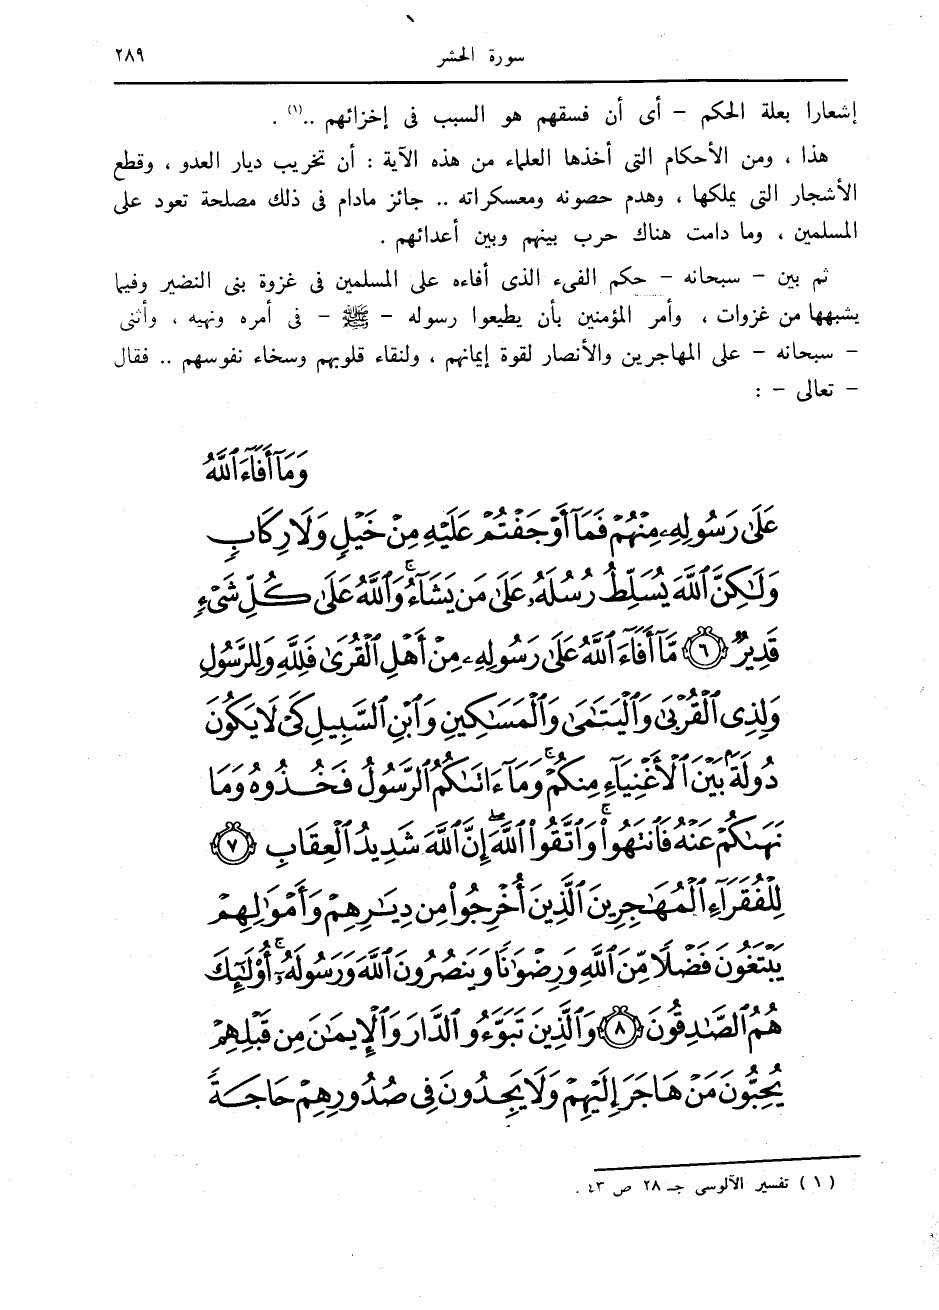 سورة الحشر ٢٨٩
إشعارا بعلة الحكم – أى أن فسقهم هو السبب فى إخزائهم ..(١) .
هذا ، ومن الأحكام التى أخذها العلماء من هذه الآية : أن تخريب ديار العدو ، وقطع
الأشجار التى يملكها ، وهدم حصونه ومعسكراته .. جائز مادام فى ذلك مصلحة تعود على
المسلمين ، وما دامت هناك حرب بينهم وبين أعدائهم .
ثم بين – سبحانه – حكم الفىء الذى أفاءه على المسلمين فى غزوة بنى النضير وفيما
يشبهها من غزوات ، وأمر المؤمنين بأن يطيعوا رسوله – ﷺ – فى أمره ونهيه ، وأثنى
– سبحانه – على المهاجرين والأنصار لقوة إيمانهم ، ولنقاء قلوبهم وسخاء نفوسهم .. فقال
– تعالى – :
وَمَآ أَفَآءَ ٱللَّهُ
عَلَىٰ رَسُولِهِۦ مِنْهُمْ فَمَآ أَوْجَفْتُمْ عَلَيْهِ مِنْ خَيْلٍ وَلَا رِكَابٍ
وَلَٰكِنَّ ٱللَّهَ يُسَلِّطُ رُسُلَهُۥ عَلَىٰ مَن يَشَآءُ ۚ وَٱللَّهُ عَلَىٰ كُلِّ شَىْءٍ
قَدِيرٌ ٦ مَّآ أَفَآءَ ٱللَّهُ عَلَىٰ رَسُولِهِۦ مِنْ أَهْلِ ٱلْقُرَىٰ فَلِلَّهِ وَلِلرَّسُولِ
وَلِذِى ٱلْقُرْبَىٰ وَٱلْيَتَٰمَىٰ وَٱلْمَسَٰكِينِ وَٱبْنِ ٱلسَّبِيلِ كَىْ لَا يَكُونَ
دُولَةًۢ بَيْنَ ٱلْأَغْنِيَآءِ مِنكُمْ ۚ وَمَآ ءَاتَىٰكُمُ ٱلرَّسُولُ فَخُذُوهُ وَمَا
نَهَىٰكُمْ عَنْهُ فَٱنتَهُوا۟ ۚ وَٱتَّقُوا۟ ٱللَّهَ ۖ إِنَّ ٱللَّهَ شَدِيدُ ٱلْعِقَابِ ٧
لِلْفُقَرَآءِ ٱلْمُهَٰجِرِينَ ٱلَّذِينَ أُخْرِجُوا۟ مِن دِيَٰرِهِمْ وَأَمْوَٰلِهِمْ
يَبْتَغُونَ فَضْلًا مِّنَ ٱللَّهِ وَرِضْوَٰنًا وَيَنصُرُونَ ٱللَّهَ وَرَسُولَهُۥٓ ۚ أُو۟لَٰٓئِكَ
هُمُ ٱلصَّٰدِقُونَ ٨ وَٱلَّذِينَ تَبَوَّءُو ٱلدَّارَ وَٱلْإِيمَٰنَ مِن قَبْلِهِمْ
يُحِبُّونَ مَنْ هَاجَرَ إِلَيْهِمْ وَلَا يَجِدُونَ فِى صُدُورِهِمْ حَاجَةً
( ١ ) تفسير الآلوسى جـ ٢٨ ص ٤٣ .